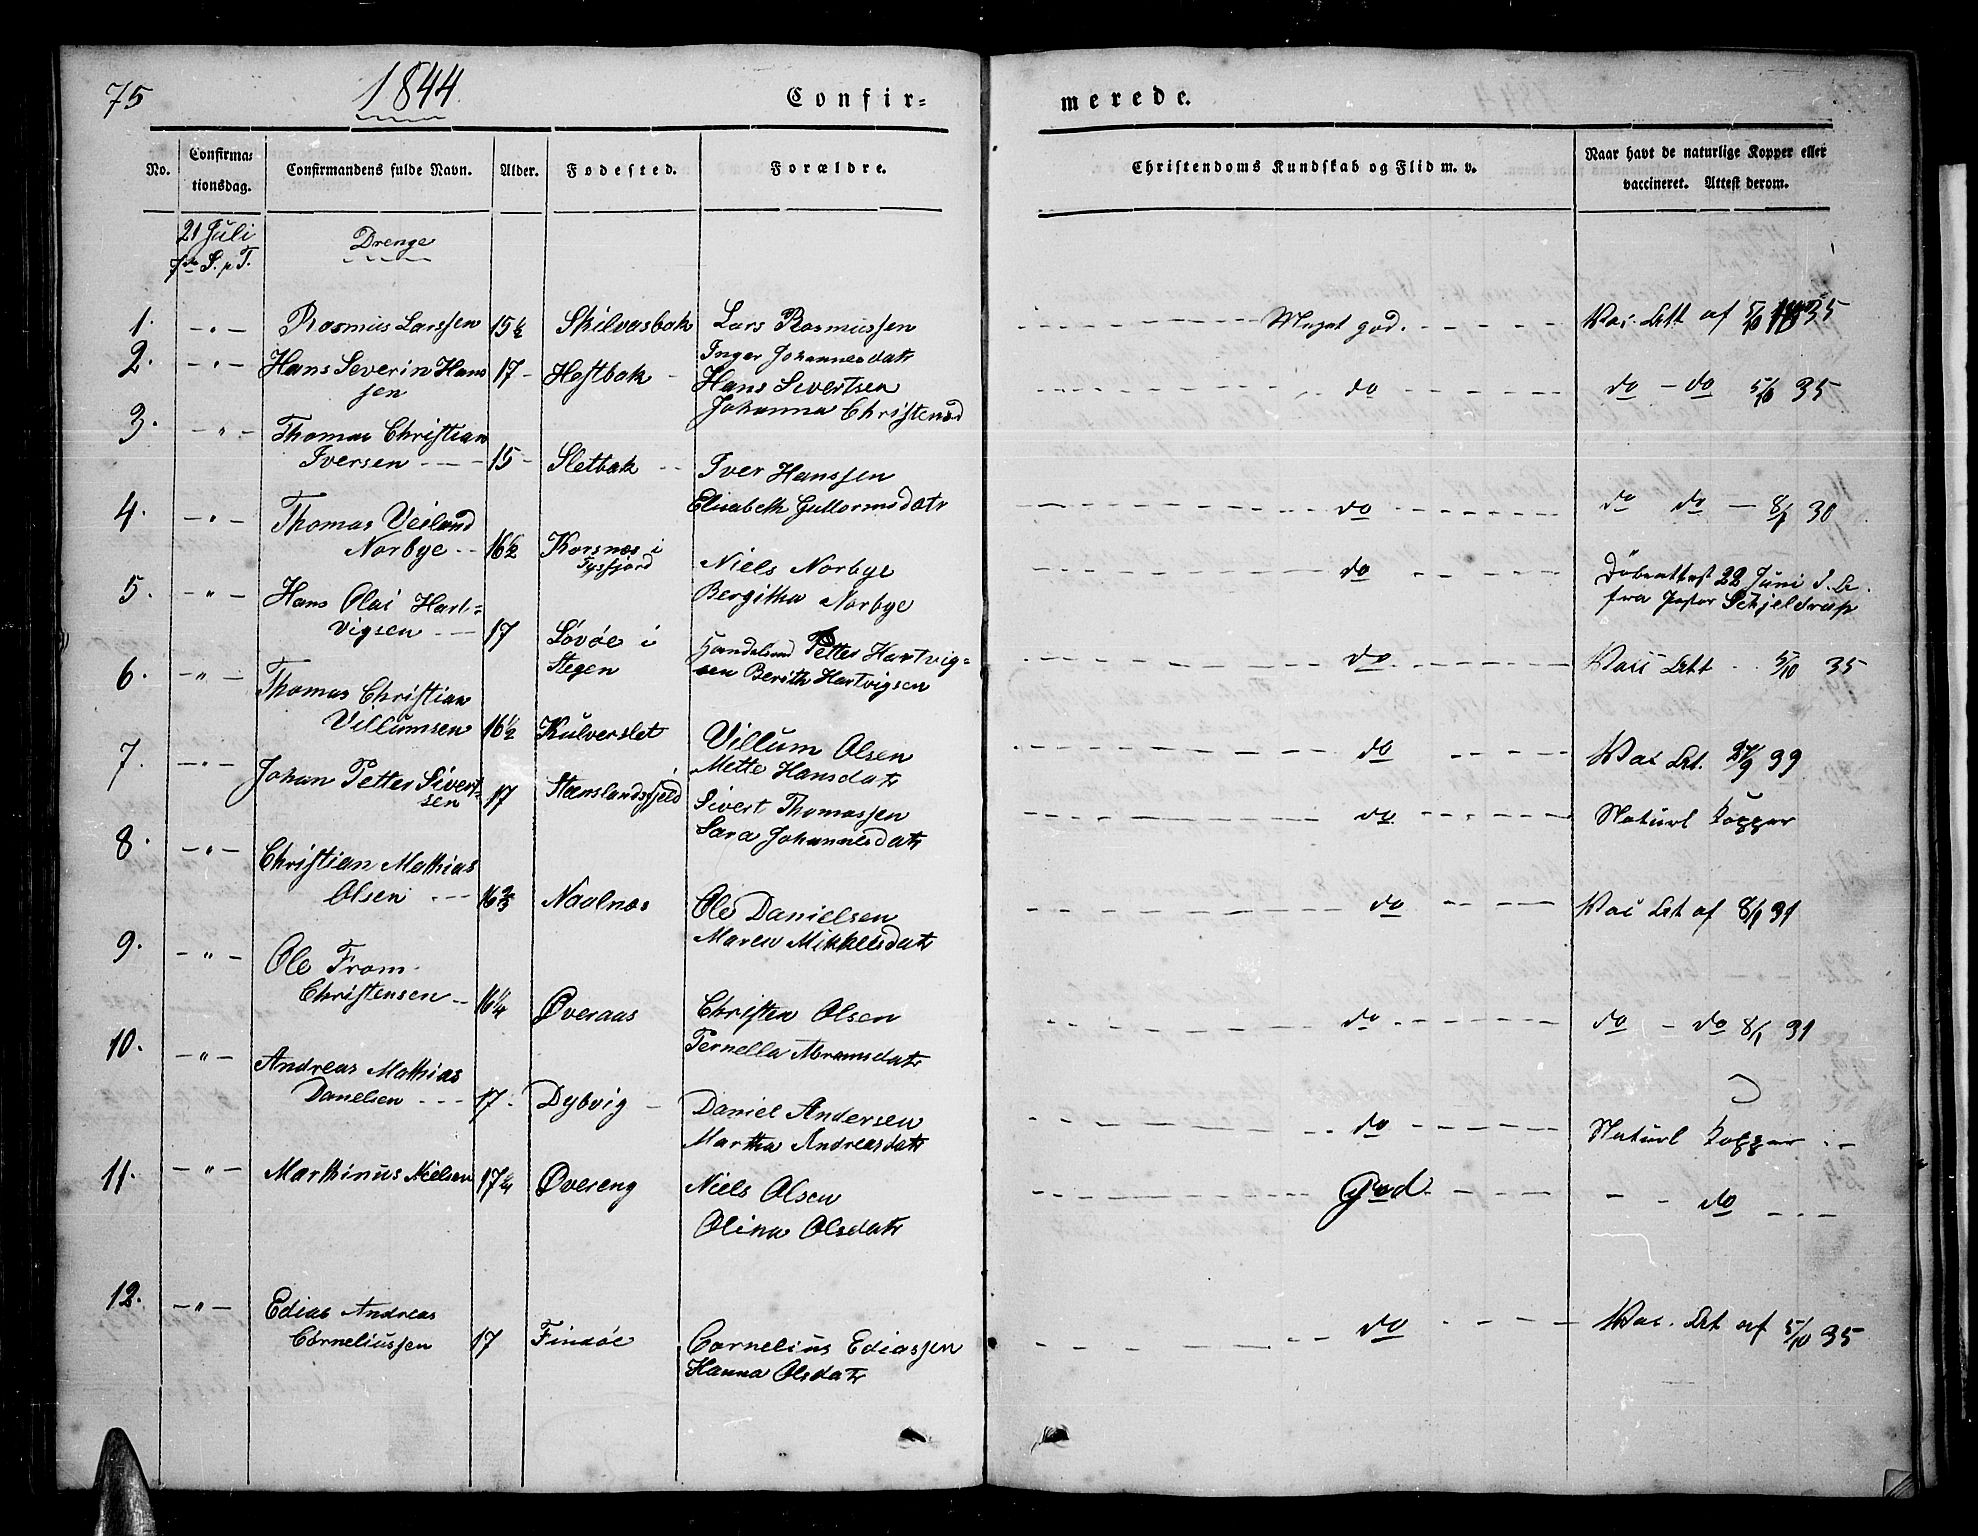 75
1844
Confir-
merede.
No.
Confirma-
tionsdag.
Confirmandens fulde Navn.
Alder.
Fødested.
Forældre.
Christendoms Kundskab og Flid m. v.
Naar havt de naturlige Kopper eller
vaccineret. Attest derom.
21 Juli
7de S. p T.
Drenge
1. - " - Rasmus Larssen 15½ Skilvasbak Lars Rasmussen Meget god. Vac. Att af 5/10 1835
Inger Johannesdatr
2. - " - Hans Severin Hans 17 - Hestbak - Hans Sivertsen do do - do 5/10 35
sen Johanna Christensd
3. - " - Thomas Christian
Iversen - - - 15 - Sletbak - - Iver Hanssen do do do - 8/1 30
Elisabeth Guttormsdatr
4. - " - Thomas Veiland
Norbye - - 16½ Korsnæs i Niels Norbye do Døbeattest 22 Juni
Tysfjord Bergitha Norbye fra Pastor Schjeldrup
5. - " - Hans Olai Hart-
vigsen - - 17 Løvøe i Handelsmd Petter Hartvig- do Vacc Att - - 5/10 35
Stegen sen Berith Hartvigsen
6. - " - Thomas Christian
Villumsen 16½ Kulverslet Villum Olsen do Vac At. 27/9 39
Mette Hansdatr
7. - " - Johan Petter Sivert-
sen 17 Stenslandsfjeld Sivert Thomassen do Naturl Kopper
Sara Johannesdatr
8. - " - Christian Mathias
Olsen - - - 16⅔ Naalnæs Ole Danielsen do Vac At af 8/1 31
Maren Mikkelsdatr
9. - " - Ole From
Christensen - 16¼ Øveraas Christen Olsen do do - do 8/1 31
Pernella Abramsdatr
10. - " - Andreas Mathias
Danelsen - - - 17 - Dybvig - Daniel Andersen do Naturl Kopper - -
Martha Andreasdatr
11. - " - Marthinus Nielsen 17¼ Øvereng Niels Olsen God - - do - - -
Olina Olsdatr
12. - " - Edias Andreas
Corneliussen 17 Findøe Cornelius Ediassen do Vac. At af 5/10 35
Hanna Olsdatr